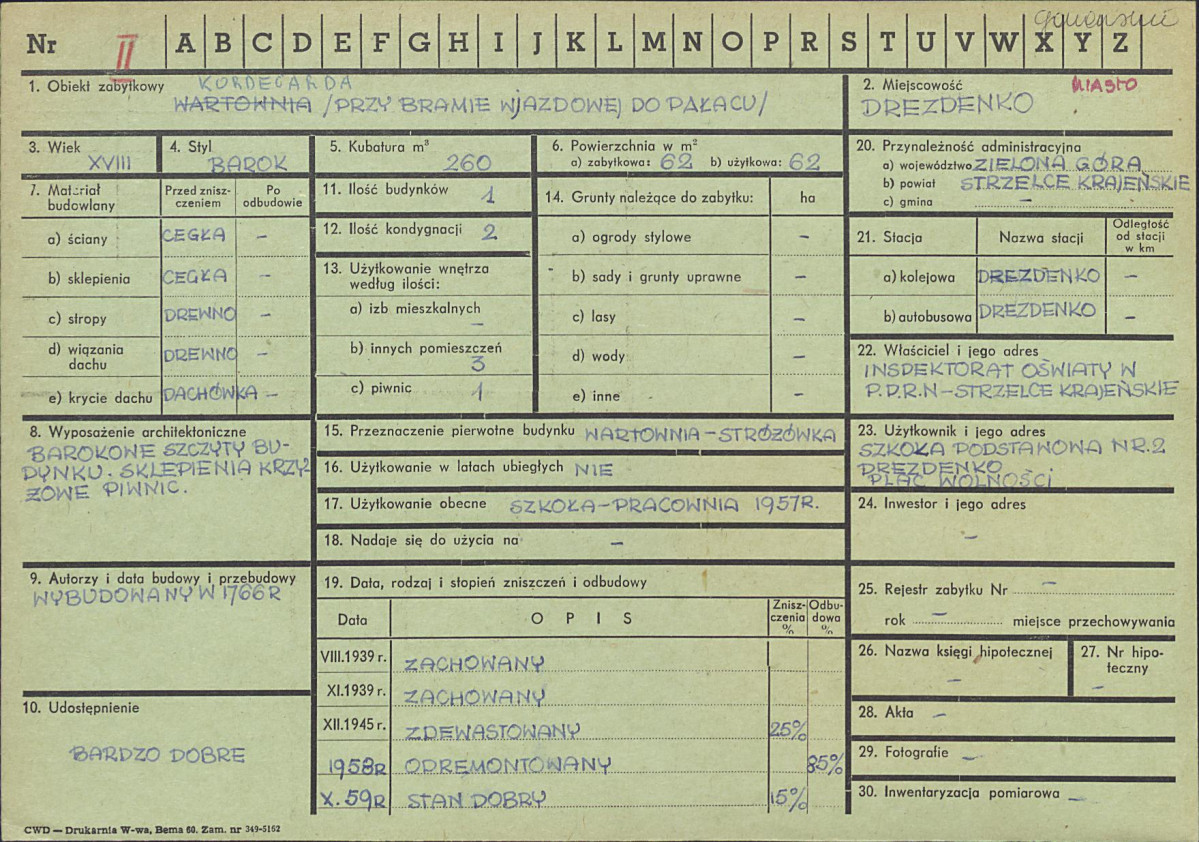 Nr II A B C D E F G H I J K L M N O P R S T U V W X Y Z
1. Obiekt zabytkowy KORDEGARDA
WARTOWNIA /PRZY BRAMIE WJAZDOWEJ DO PAŁACU/
2. Miejscowość MIASTO
DREZDENKO
3. Wiek
XVIII
4. Styl
BAROK
5. Kubatura m³
260
6. Powierzchnia w m²
a) zabytkowa: 62 b) użytkowa: 62
20. Przynależność administracyjna
a) województwo ZIELONA GÓRA
b) powiat STRZELCE KRAJEŃSKIE
c) gmina –
7. Materiał budowlany
Przed znisz-
czeniem
Po
odbudowie
a) ściany CEGŁA –
b) sklepienia CEGŁA –
c) stropy DREWNO –
d) wiązania
dachu DREWNO –
e) krycie dachu DACHÓWKA –
11. Ilość budynków 1
12. Ilość kondygnacji 2
13. Użytkowanie wnętrza
według ilości:
a) izb mieszkalnych
–
b) innych pomieszczeń
3
c) piwnic 1
14. Grunty należące do zabytku: ha
a) ogrody stylowe –
b) sady i grunty uprawne –
c) lasy –
d) wody –
e) inne –
21. Stacja Nazwa stacji
Odległość
od stacji
w km
a) kolejowa DREZDENKO –
b) autobusowa DREZDENKO –
22. Właściciel i jego adres
INSPEKTORAT OŚWIATY W
P.P.R.N – STRZELCE KRAJEŃSKIE
8. Wyposażenie architektoniczne
BAROKOWE SZCZYTY BU-
DYNKU. SKLEPIENIA KRZY
ŻOWE PIWNIC.
15. Przeznaczenie pierwotne budynku WARTOWNIA – STRÓŻÓWKA
16. Użytkowanie w latach ubiegłych NIE
17. Użytkowanie obecne SZKOŁA – PRACOWNIA 1957R.
18. Nadaje się do użycia na –
23. Użytkownik i jego adres
SZKOŁA PODSTAWOWA NR.2
DREZDENKO
PLAC WOLNOŚCI
24. Inwestor i jego adres
–
9. Autorzy i data budowy i przebudowy
WYBUDOWANY W 1766 R
19. Data, rodzaj i stopień zniszczeń i odbudowy
Data OPIS
Znisz-
czenia
%
Odbu-
dowa
%
VIII.1939 r. ZACHOWANY
XI.1939 r. ZACHOWANY
XII.1945 r. ZDEWASTOWANY 25%
1958R ODREMONTOWANY 85%
X.59R STAN DOBRY 15%
25. Rejestr zabytku Nr –
rok – miejsce przechowywania
26. Nazwa księgi hipotecznej
–
27. Nr hipo-
teczny
–
10. Udostępnienie
BARDZO DOBRE
28. Akta –
29. Fotografie –
30. Inwentaryzacja pomiarowa –
CWD — Drukarnia W-wa, Bema 60. Zam. nr 349-5162